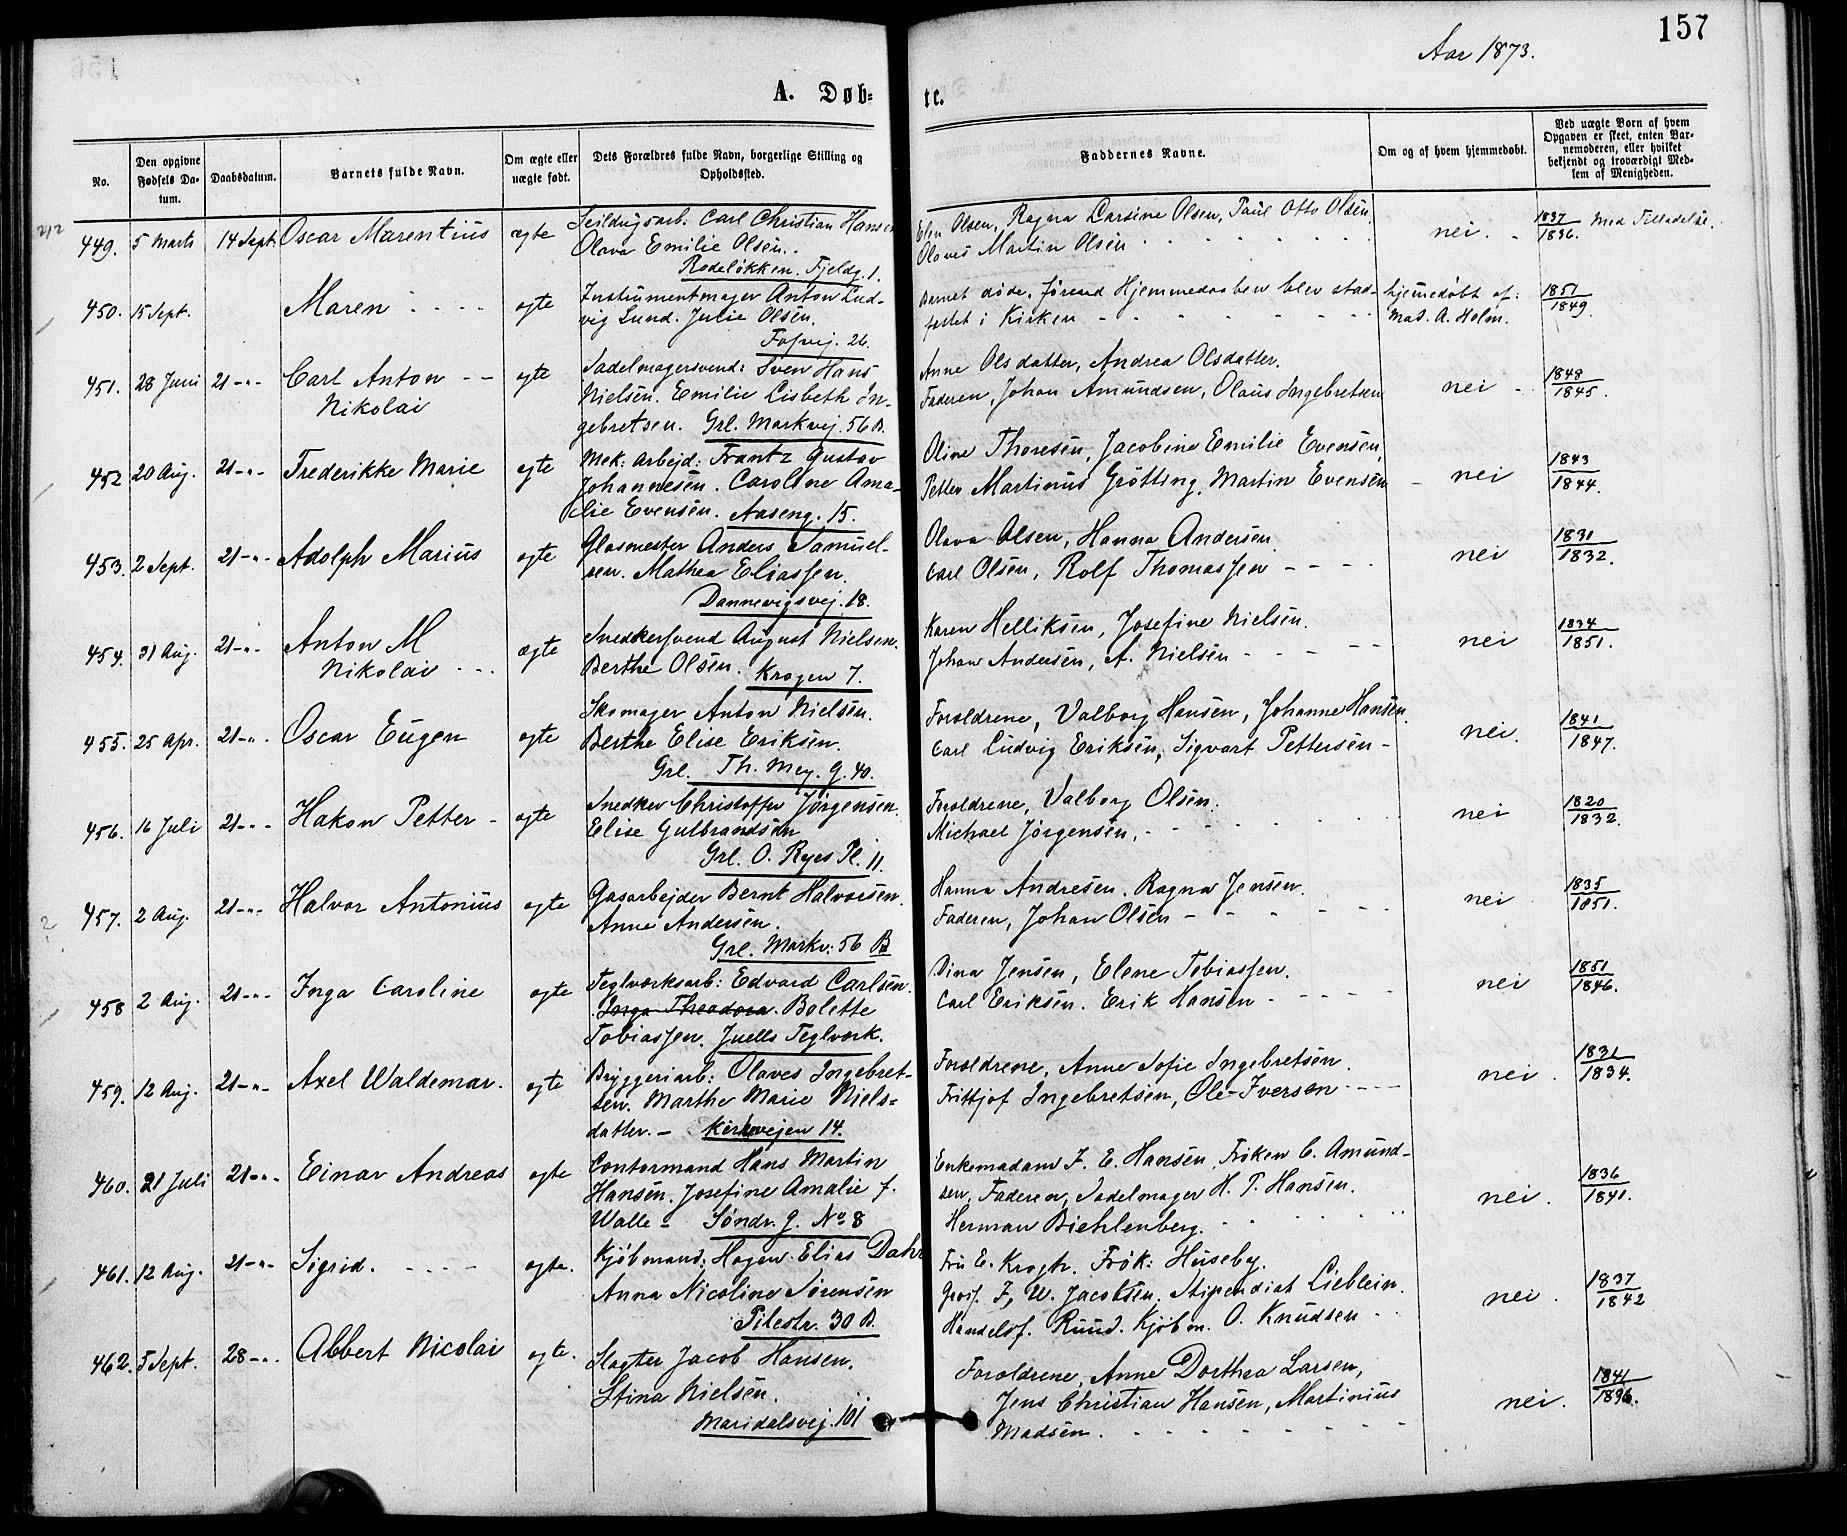 157
Aar 1873.
A. Døb-
te.
No.
Den opgivne Fødsels Da-tum.
Daabsdatum.
Barnets fulde Navn.
Om ægte eller uægte født.
Dets Forældres fulde Navn, borgerlige Stilling og Opholdssted.
Faddernes Navne.
Om og af hvem hjemmedøbt.
Ved uægte Børn af hvem Opgaven er skeet, enten Bar-nemoderen, eller hvilket bekjendt og troværdigt Med-lem af Menigheden.
449. 5 Marts 14 Sept. Oscar Marentius ægte Seildugsarb: Carl Christian Hansen
Olava Emilie Olsen.
Rodeløkken. Fjeldg. 1.
Elen Olsen, Ragna Larsine Olsen, Paul Otto Olsen.
Olaves Martin Olsen
nei. 1837/1836. Med Tilladelse.
450. 15 Sept. Maren ægte Instrumentmager Anton Lud-
vig Lund. Julie Olsen.
Fossvej. 26.
Barnet døde, førend Hjemmedaaben blev stad-
fæstet i Kirken
hjemedøbt af:
Mad. A. Holm. 1851/1849.
451. 28 Juni 21-"- Carl Anton
Nikolai ægte Sadelmagersvend: Sven Hans
Nielsen. Emilie Lisbeth In-
gebretsen. Grl. Markvej. 56 B.
Anne Olsdatter, Andrea Olsdatter.
Faderen, Johan Amundsen, Olaus Ingebretsen
nei 1848/1845.
452 20 Aug. 21-"- Frederikke Marie ægte Mek: Arbejd: Frantz Gustav
Johannesen. Caroline Ama-
lie Evensen. Aaseng. 15.
Oline Thoresen, Jacobine Emilie Evensen,
Petter Martinus Grøtting, Martin Evensen
nei 1843/1844.
453. 2 Sept. 21-"- Adolph Marius ægte Glasmester Anders Samuel-
sen. Mathea Eliassen.
Dannevigsvej. 18.
Olava Olsen, Hanna Andersen.
Carl Olsen, Rolf Thomassen
nei 1831/1832.
454. 31 Aug. 21-"- Anton M
Nikolai ægte Snedkersvend August Nielsen.
Berthe Olsen. Krogen 7.
Karen Helliksen, Josefine Nielsen.
Johan Andersen, A. Nielsen
nei 1834/1851.
455. 25 Apr. 21-"- Oscar Eugen ægte Skomager Anton Nielsen.
Berthe Elise Eriksen.
Grl. Th. Mey. G. 40.
Forældrene, Valborg Hansen, Johanne Hansen.
Carl Ludvig Eriksen, Sigvart Pettersen
nei. 1841/1847.
456. 16 Juli 21-"- Hakon Petter ægte Snedker Christoffer Jørgensen.
Elise Gulbrandsen
Grl. O. Ryes Pl. 11.
Forældrene, Valborg Olsen.
Michael Jørgensen,
nei 1820/1832.
457. 2 Aug. 21-"- Halvor Antonius ægte Gasarbejder Bernt Halvorsen.
Anne Andersen.
Grl. Markv: 56 B
Hanna Andresen. Ragna Jensen.
Faderen, Johan Olsen
nei 1835/1851.
458 2 Aug. 21-"- Inga Caroline ægte Teglværksarb: Edvard Carlsen.
Inga Theodora. Bolette
Tobiassen. Juells Teglværk.
Dina Jensen, Elene Tobiassen.
Carl Eriksen. Erik Hansen
nei 1851/1846.
459. 12 Aug. 21-"- Axel Waldemar. ægte Bryggeriarb: Olaves Ingebret-
sen. Marthe Marie Niels-
datter. Kirkevejen 14.
Forældrene, Anne Sofie Ingebretsen.
Frittjof Ingebretsen, Ole Iversen
nei 1831/1834.
460. 21 Juli 21-"- Einar Andreas ægte Contormand Hans Martin
Hansen. Josefine Amalie f.
Walle - Søndr. G. No 8
Enkemadam F. E. Hansen, Frøken C. Amund-
sen, Faderen, Sadelmager H. P. Hansen.
Herman Biehlenberg.
nei. 1836/1841.
461. 12 Aug. 21-"- Sigrid. ægte. Kjøbmand: Hagen Elias Dahl
Anna Nicoline Sørensen
Pilestr. 30 B.
Fru E. Krogh. Frøk: Huseby.
Gros. F. W. Jacobsen. Stipendiat Lieblein.
Handelsf. Ruud. Kjøbm. O. Knudsen
nei. 1837/1842
462. 5 Sept. 28-"- Albert Nicolai ægte. Slagter Jacob Hansen.
Stina Nielsen.
Maridalsvej. 101
Forældrene, Anne Dorthea Larsen,
Jens Christian Hansen, Martinius
Madsen.
nei. 1841